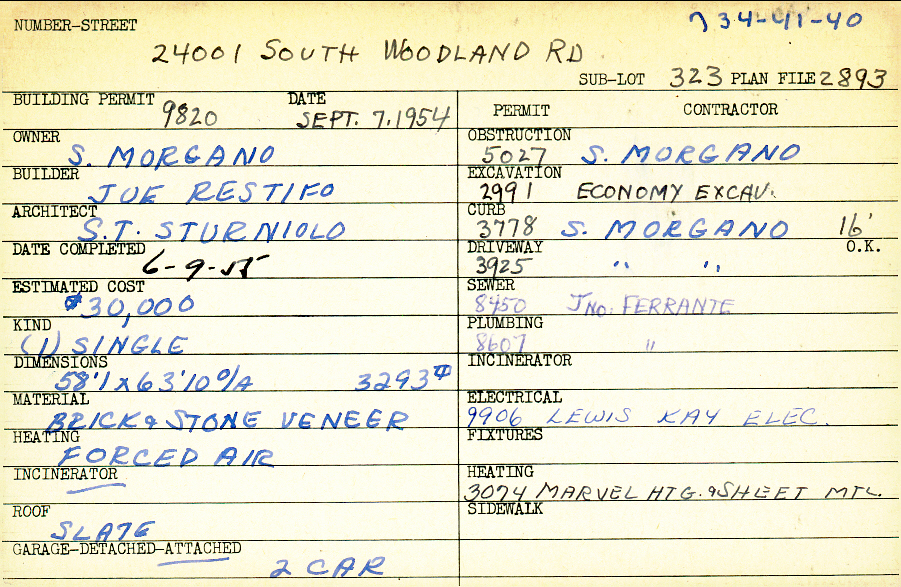 NUMBER-STREET
734-41-40
24001 SOUTH WOODLAND RD
SUB-LOT 323 PLAN FILE 2893
BUILDING PERMIT 9820 DATE SEPT. 7, 1954
PERMIT CONTRACTOR
OWNER
S. MORGANO
OBSTRUCTION
5027 S. MORGANO
BUILDER
JOE RESTIFO
EXCAVATION
2991 ECONOMY EXCAV.
ARCHITECT
S.T. STURNIOLO
CURB
3778 S. MORGANO 16'
DATE COMPLETED
6-9-55
DRIVEWAY O.K.
3925 " "
ESTIMATED COST
$30,000
SEWER
8450 JNO. FERRANTE
KIND
(1) SINGLE
PLUMBING
8607 "
DIMENSIONS
58'1 x 63'10 O/A 3293#
INCINERATOR
MATERIAL
BRICK & STONE VENEER
ELECTRICAL
9906 LEWIS KAY ELEC.
HEATING
FORCED AIR
FIXTURES
INCINERATOR
HEATING
3074 MARVEL HTG. & SHEET MTL.
ROOF
SLATE
SIDEWALK
GARAGE-DETACHED-ATTACHED
2 CAR